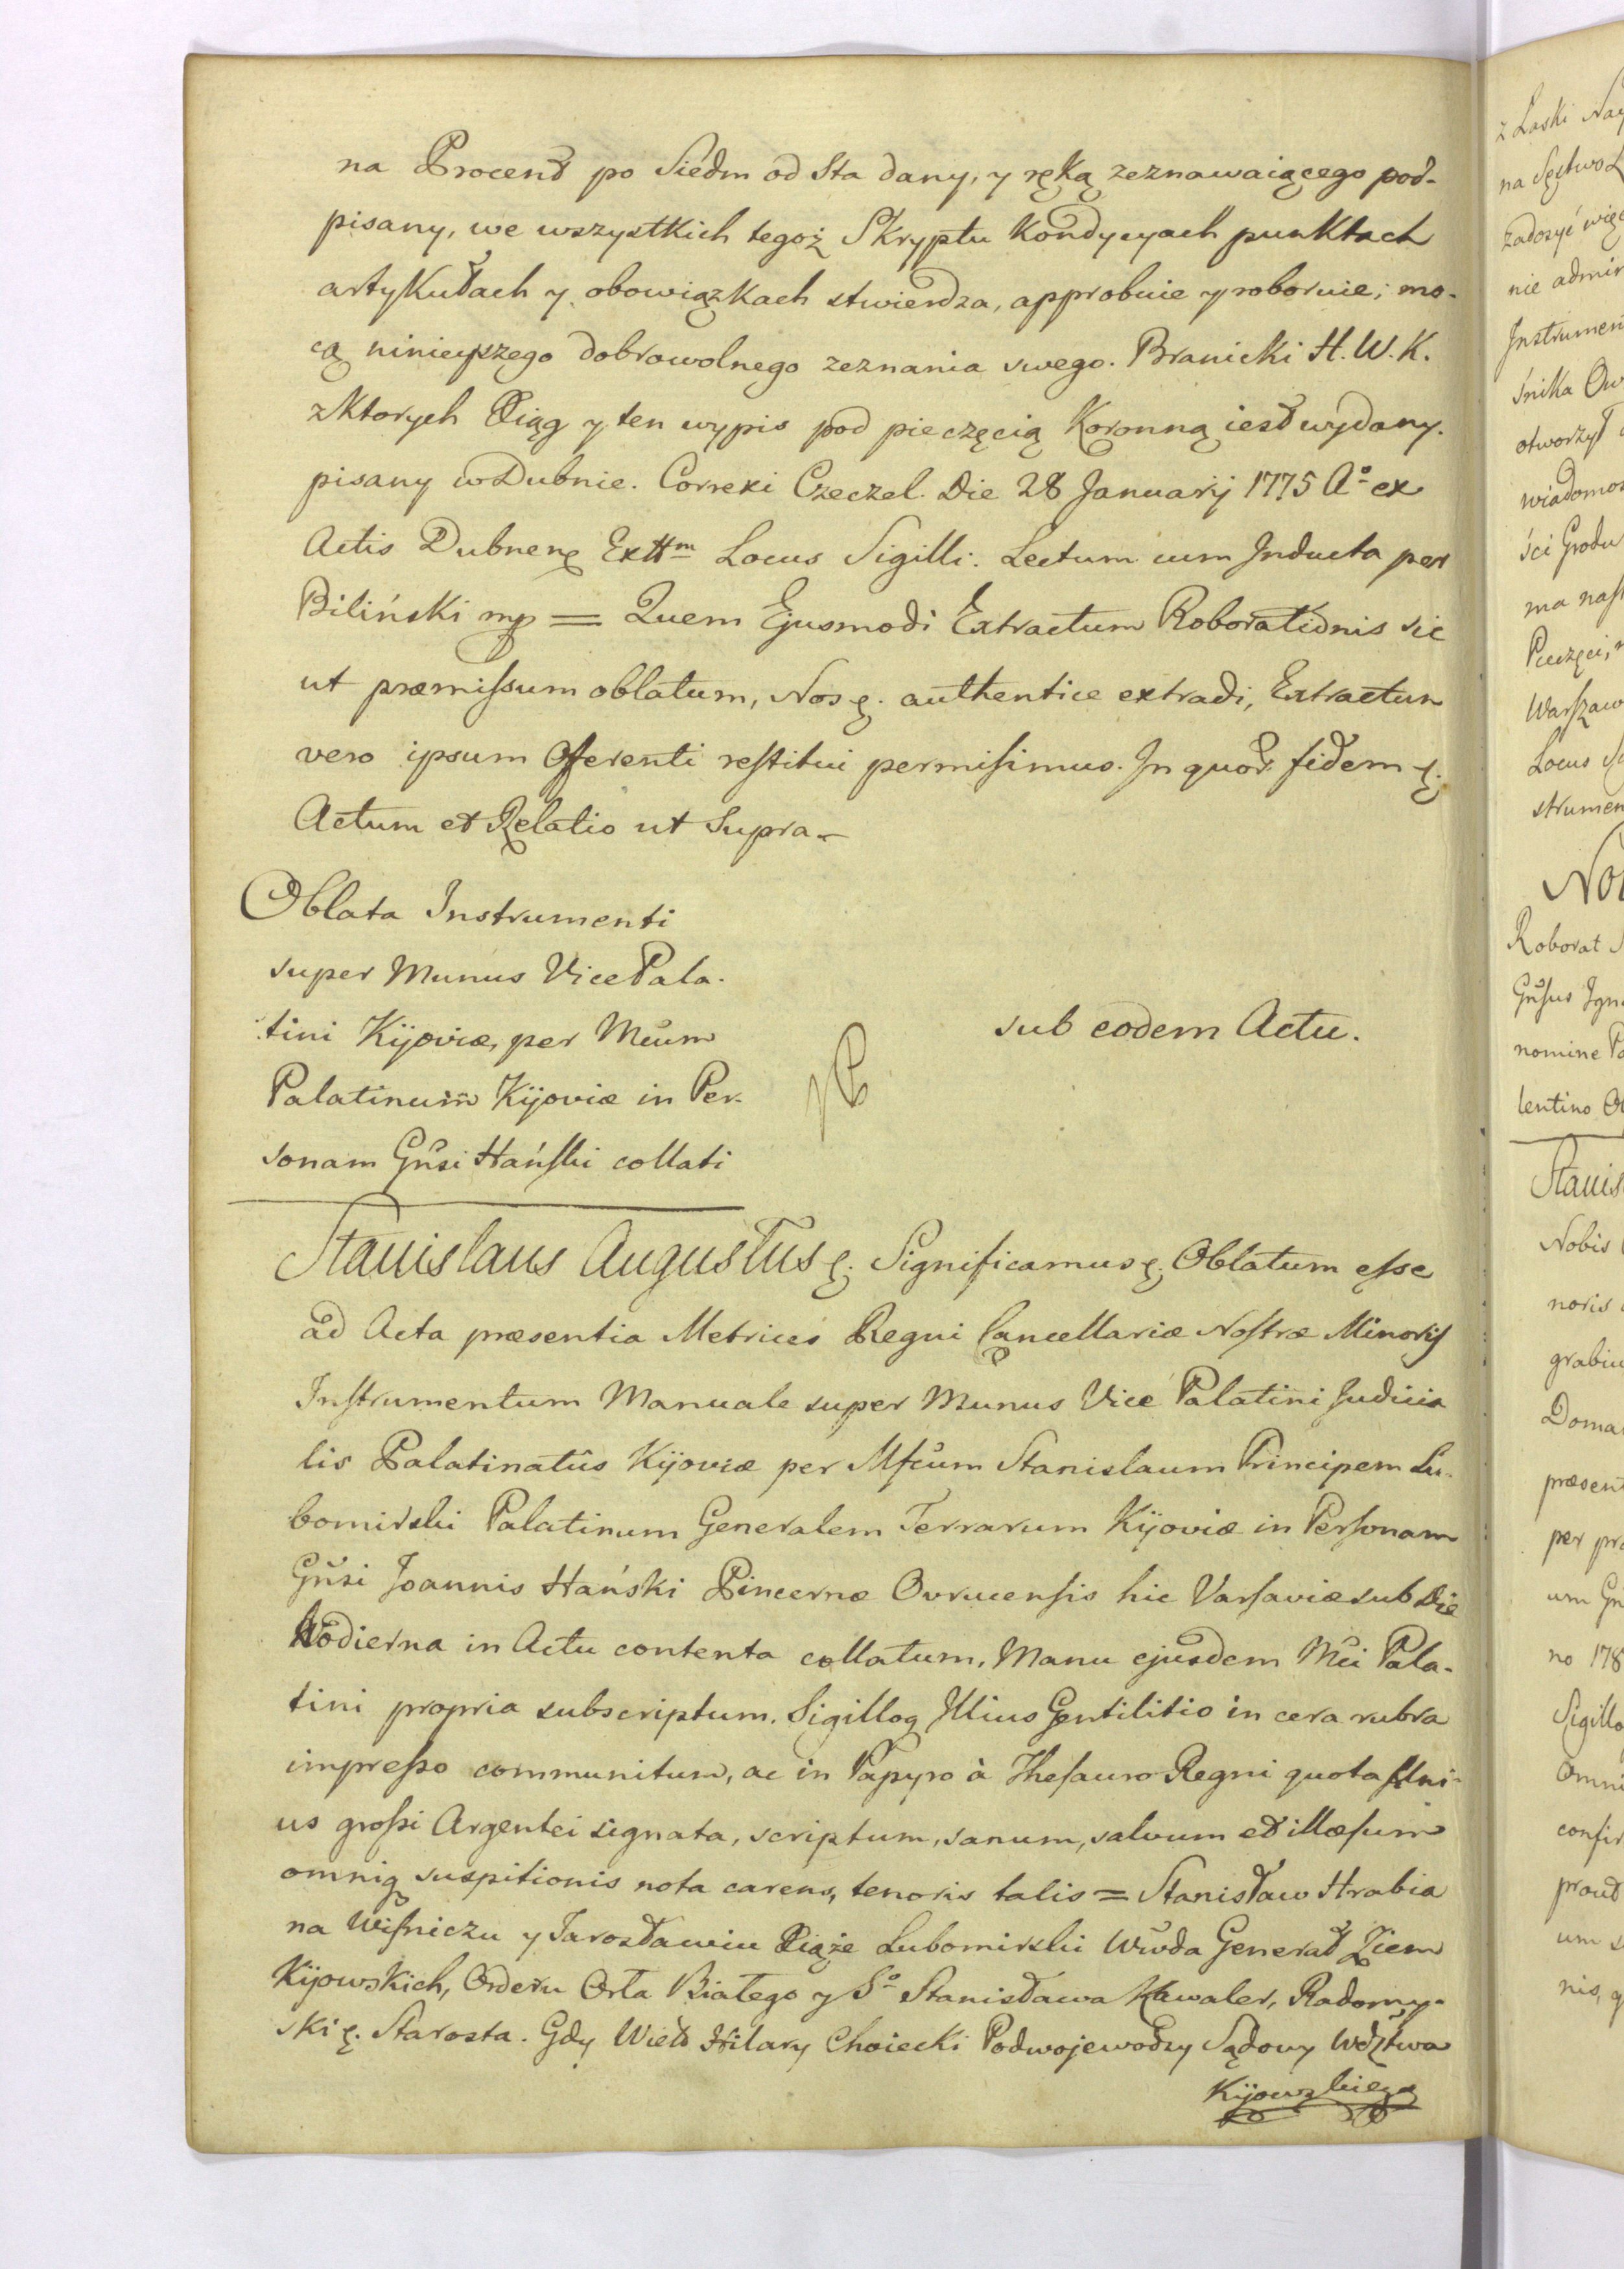 na Procent po Siedm od Sta dany, y ręką zeznawaiącego pod-
pisany, we wszystkich tegoż Skryptu Kondycyach punktach
artykułach y obowiązkach stwierdza, approbuie y roboruie; mo-
cą ninieyszego dobrowolnego zeznania swego. Branicki H. W. K.
z Ktorych Xiąg y ten wypis pod pieczęcią Koronną iest wydany.
pisany w Dubnie. Correxi Czeczel. Die 28 Januarij 1775 Aº ex
Actis Dubnen Extt͞m Locus Sigilli. Lectum cum Inducta per
Biliński mp = Quem Ejusmodi Extractum Roborationis sic
ut præmissum oblatum, Nos ę. authentice extradi, Extractum
vero ipsum Offerenti restitui permisimus. In quor. fidem ę.
Actum et Relatio ut Supra
Oblata Instrumenti
super Munus Vice Pala-
tini Kijoviæ, per Mcum
Palatinum Kijoviæ in Per-
sonam Gnsi Hański collati
sub eodem Actu.
Stanislaus Augustus ę. Significamus ę. Oblatum esse
ad Acta præsentia Metrices Regni Cancellariæ Nostræ Minoris
Instrumentum Manuale super Munus Vice Palatini Judicia
lis Palatinatûs Kijoviæ per Mfcum Stanislaum Principem Lu-
bomirski Palatinum Generalem Terrarum Kijoviæ in Personam
Gnsi Joannis Hański Pincernæ Ovrucensis hic Varsaviæ sub Die
Hodierna in Actu contenta collatum, Manu ejusdem Mci Pala-
tini propria subscriptum, Sigilloq Illius Gentilitio in cera rubra
impresso communitum, ac in Papyro à Thesauro Regni quota Uni-
us grossi Argentei signata, scriptum, sanum, salvum et illæsum
omniq suspitionis nota carens, tenoris talis = Stanisław Hrabia
na Wiśniczu y Jarosławiu Xiąże Lubomirski Wwda Generał Ziem
Kijowskich, Orderu Orła Białego y Sº Stanisława Kawaler, Radomy-
ski ę. Starosta. Gdy Wiel Hilary Choiecki Podwojewodzy Sądowy Wdztwa
Kijowskiego
z Laski Nay
na Sęstwo
zadosyć więc
nie admin
Instrumen
śnika Ow
otworzył
wiadomoś
ści Grodu
ma nast
Pieczęci,
Warszaw
Locus
strumen
Roborat
Gnsus Igna
nomine
lentino
Stanis
Nobis
noris
grabiu
Doma
præsent
per pr
um Gn
no 178
Sigillo
Omni
confir
prout
um s
nis, q